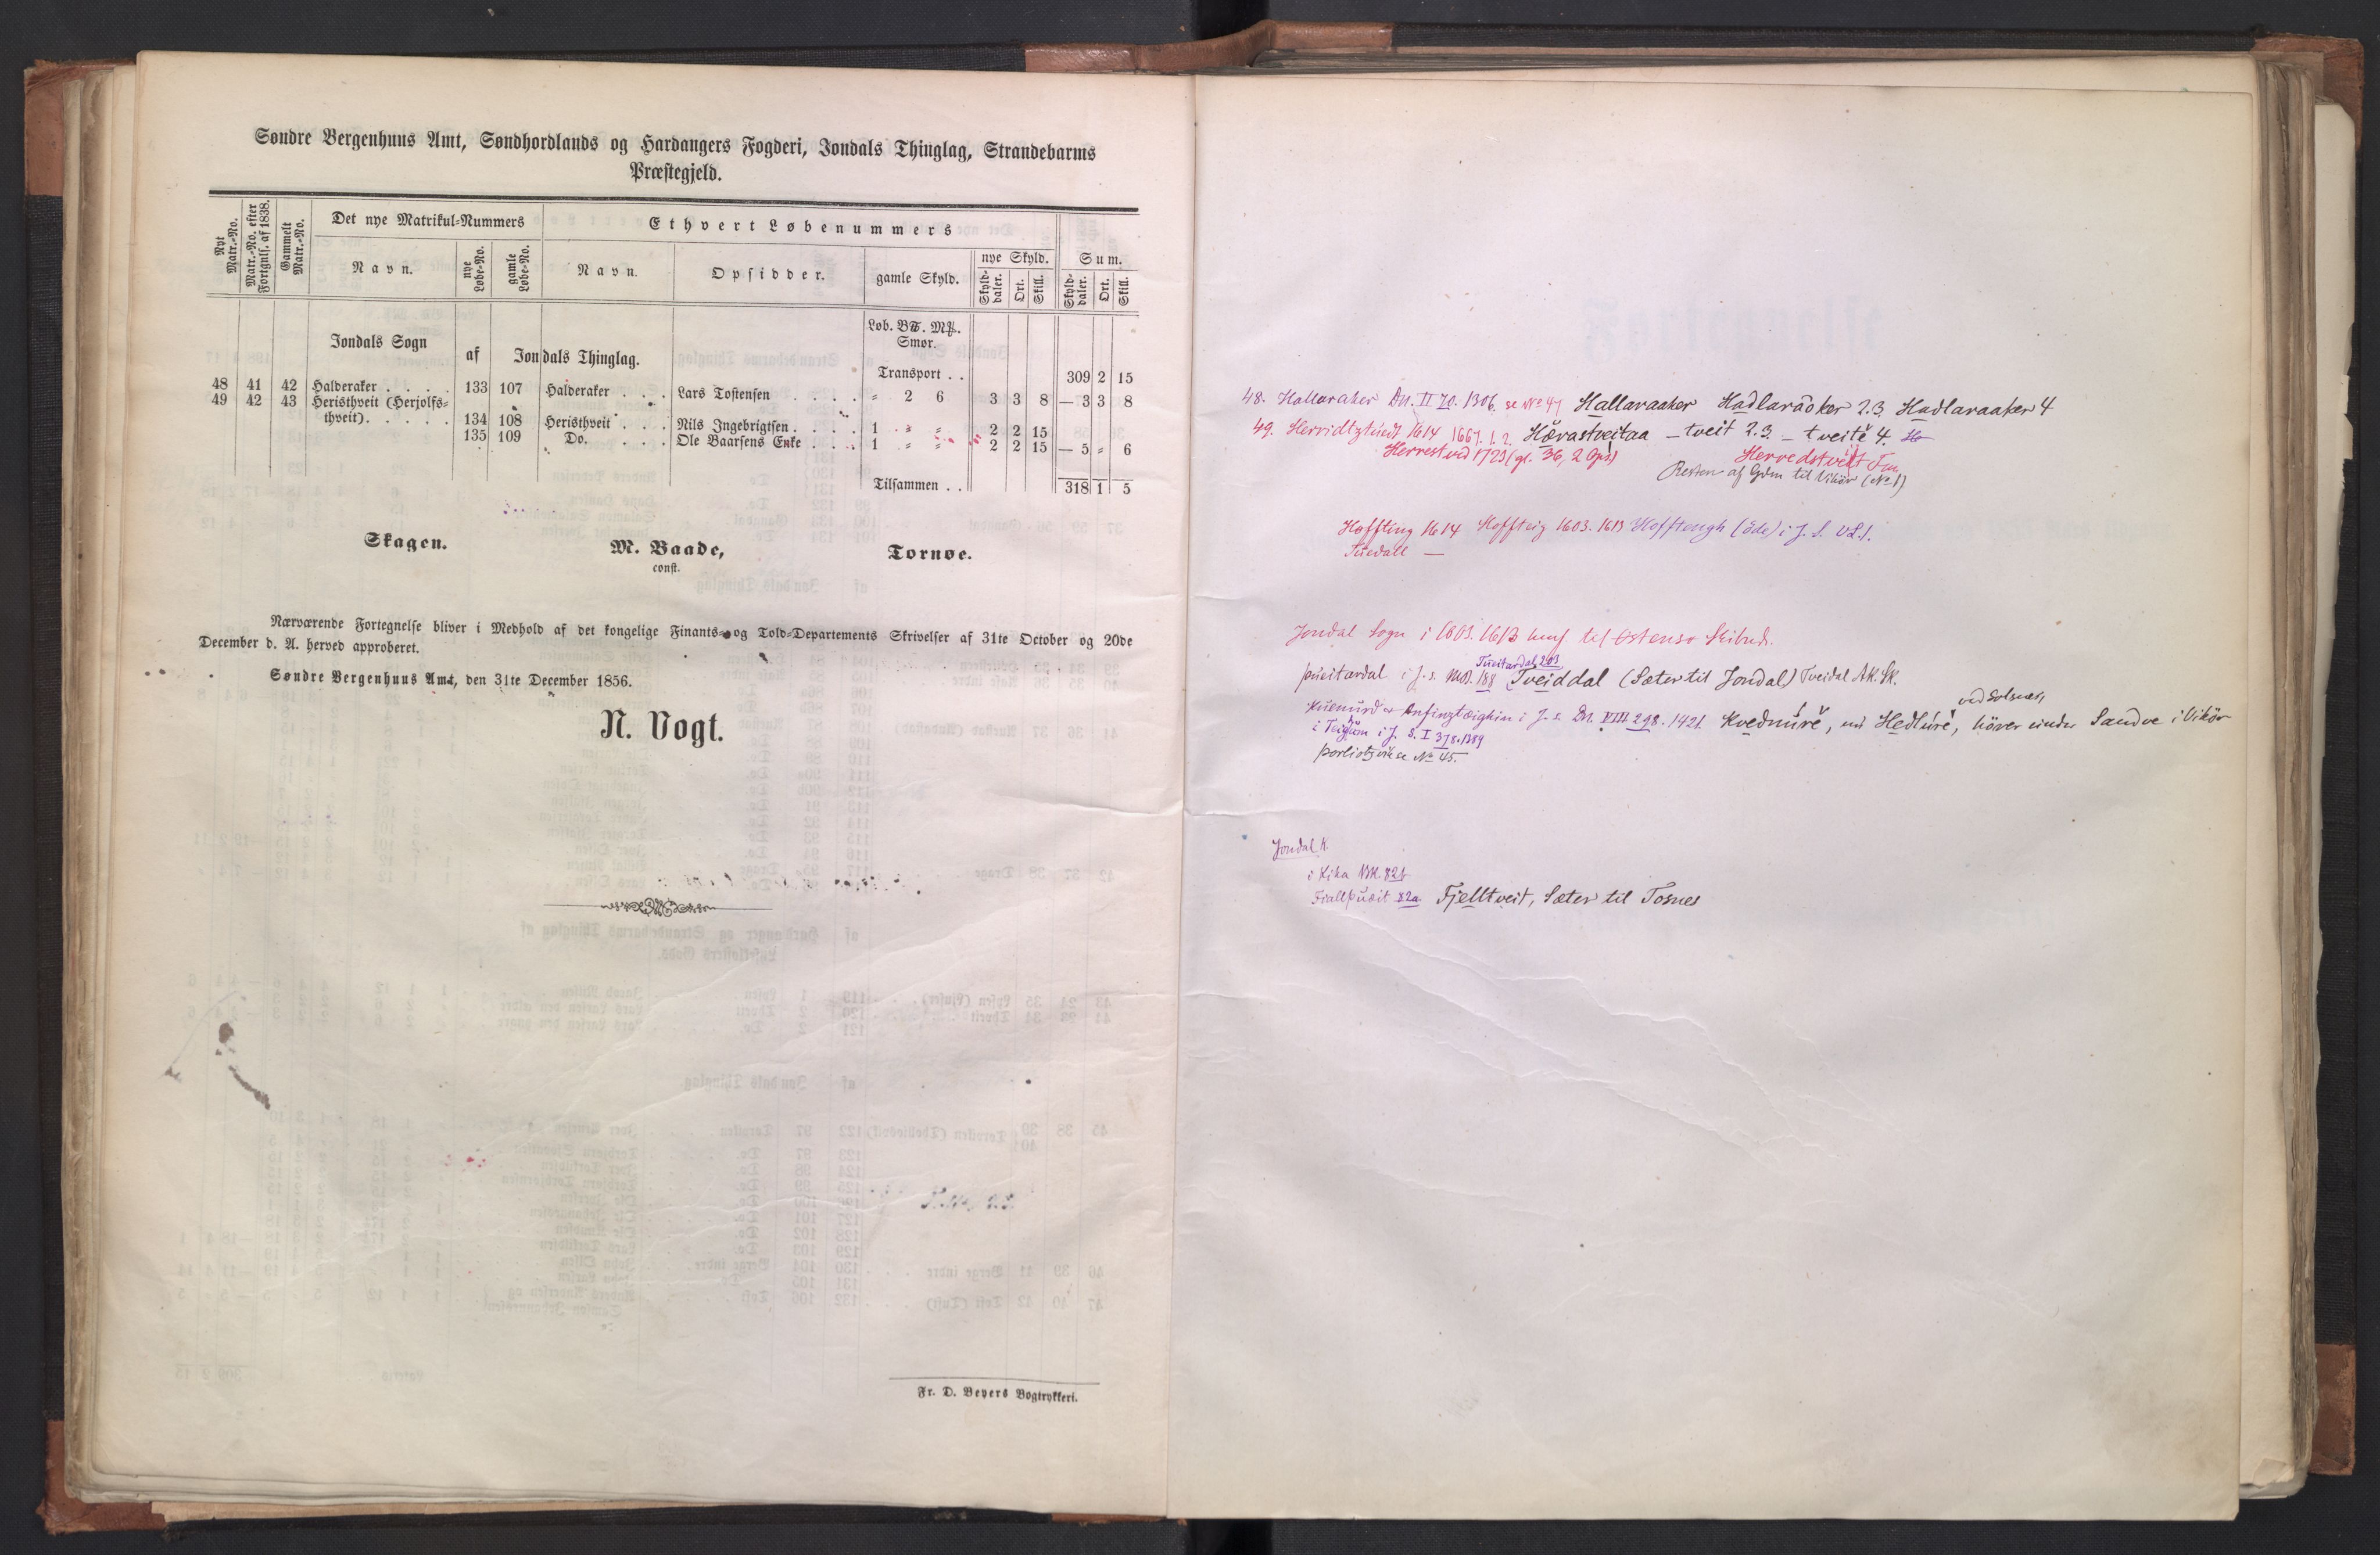 Søndre Bergenhuus Amt, Søndhordlands og Hardangers Fogderi, Jondals Thinglag, Strandebarms
Præstegjeld.
Nyt Matr.-No.
Matr.-No. efter Fortgnls. af 1838.
Gammelt Matr.-No.
Det nye Matrikul-Nummers
Ethvert Løbenummers
Navn.
nye Løbe-No.
gamle Løbe-No.
Navn.
Opsidder.
gamle Skyld.
nye Skyld.
Skyld-daler. Ort. Skill.
Sum.
Skyld-daler. Ort. Skill.
Jondals Sogn af Jondals Thinglag.
Løb. B℔. M℔.
Smør.
Transport . . 309 2 15
48 41 42 Halderaker . . . . 133 107 Halderaker . . . Lars Tostensen . . . . " 2 6 3 3 8 — 3 3 8
49 42 43 Heristhveit (Herjolfs-
thveit) . . . . . 134 108 Heristhveit . . . Nils Ingebrigtsen . . . . 1 " " 2 2 15
135 109 Do. . . . Ole Baarsens Enke . . . 1 " " 2 2 15 — 5 " 6
Tilsammen . . 318 1 5
Skagen.
M. Baade,
const.
Tornøe.
Nærværende Fortegnelse bliver i Medhold af det kongelige Finants- og Told-Departements Skrivelser af 31te October og 20de
December d. A. herved approberet.
Søndre Bergenhuus Amt, den 31te December 1856.
N. Vogt.
Fr. D. Beyers Bogtrykkeri.
48. Hallaraker Dn. II 70. 1306. se No 47 Hallaraaker Hadlaraoker 2.3 Hadlaraaker 4
49. 1614 1667. 1. 2. Hærastveitaa – tveit 2.3. – tveitě 4.
Herrestved 1723 (gl. 36, 2 Gps) Herredstveit
Resten af Gdm til Vikör (No 1)
Haffting 1614 Hoffteig 1603. 1613 Hofftengh (Øde) i J. S.
Tuedall —
Jondal Sogn i 1603. 1613 til Østensø Skibrd.
Tueitardal 203
þueitardal i J. s. 188 Tveiddal (Sæter til Jondal) Tveidal
ved Solsnes,
i J. s. Dn. VIII 298. 1421. Kvednúrě, Hedlúrě, hörer under Sandve i Vikör
i J. S. I 378. 1389
se No 45.
Jondal K.
i Kika BK. 82b
Fiallþueit 82a Fjelltveit, Sæter til Tosnes